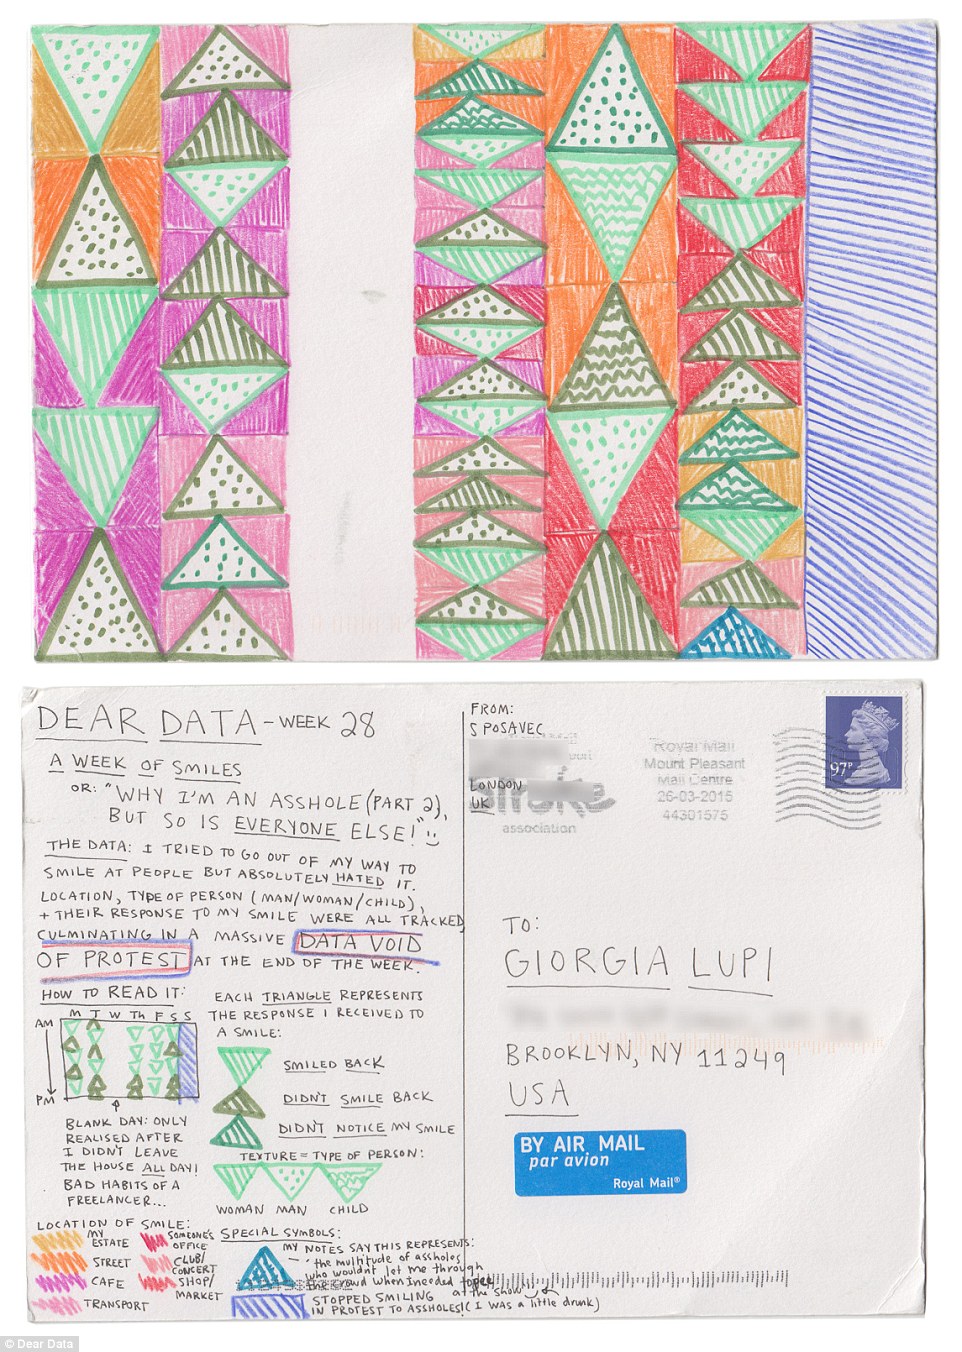 DEAR DATA - WEEK 28
A WEEK OF SMILES
OR: "WHY I'M AN ASSHOLE (PART 2),
BUT SO IS EVERYONE ELSE!"
THE DATA: I TRIED TO GO OUT OF MY WAY TO
SMILE AT PEOPLE BUT ABSOLUTELY HATED IT.
LOCATION, TYPE OF PERSON (MAN/WOMAN/CHILD),
+ THEIR RESPONSE TO MY SMILE WERE ALL TRACKED
CULMINATING IN A MASSIVE DATA VOID
OF PROTEST AT THE END OF THE WEEK.
HOW TO READ IT:
M T W Th F S S
AM
PM
BLANK DAY: ONLY
REALISED AFTER
I DIDN'T LEAVE
THE HOUSE ALL DAY!
BAD HABITS OF A
FREELANCER...
EACH TRIANGLE REPRESENTS
THE RESPONSE I RECEIVED TO
A SMILE:
SMILED BACK
DIDN'T SMILE BACK
DIDN'T NOTICE MY SMILE
TEXTURE = TYPE OF PERSON:
WOMAN MAN CHILD
LOCATION OF SMILE:
MY
ESTATE
STREET
CAFE
TRANSPORT
SOMEONE'S
OFFICE
CLUB/
CONCERT
SHOP/
MARKET
SPECIAL SYMBOLS:
MY NOTES SAY THIS REPRESENTS:
"the multitude of assholes
who wouldn't let me through
the crowd when I needed to pee
at the show"
STOPPED SMILING
IN PROTEST TO ASSHOLES (I was a little drunk)
FROM:
S POSAVEC
LONDON
UK
stroke
association
Royal Mail
Mount Pleasant
Mail Centre
26-03-2015
44301575
97P
TO:
GIORGIA LUPI
BROOKLYN, NY 11249
USA
BY AIR MAIL
par avion
Royal Mail®
© Dear Data